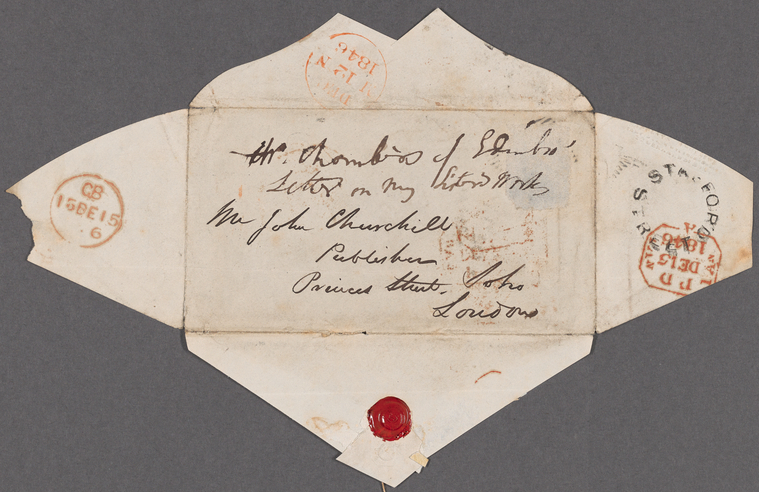 Mr. Chambers of Edinbro'
Letter on my Works
Mr John Churchill
Publisher
Princes Street, Soho
London
DE
1846
GB
15DE15
6
STAFFORD
PD
DE15
1846